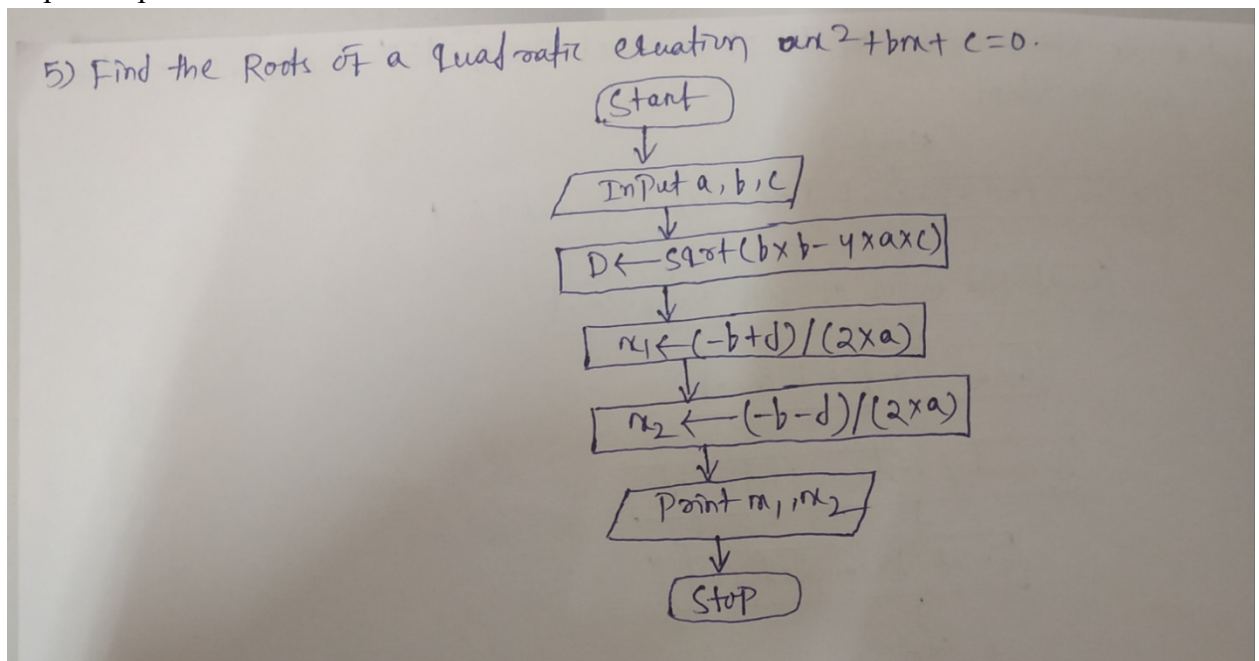 5) Find the Roots of a quadratic equation ax²+bx+ c=0.
Start
Input a, b, c
D← sqrt(b×b-4×a×c)
x₁←(-b+d)/(2×a)
x₂ ← (-b-d)/(2×a)
Print x₁, x₂
Stop